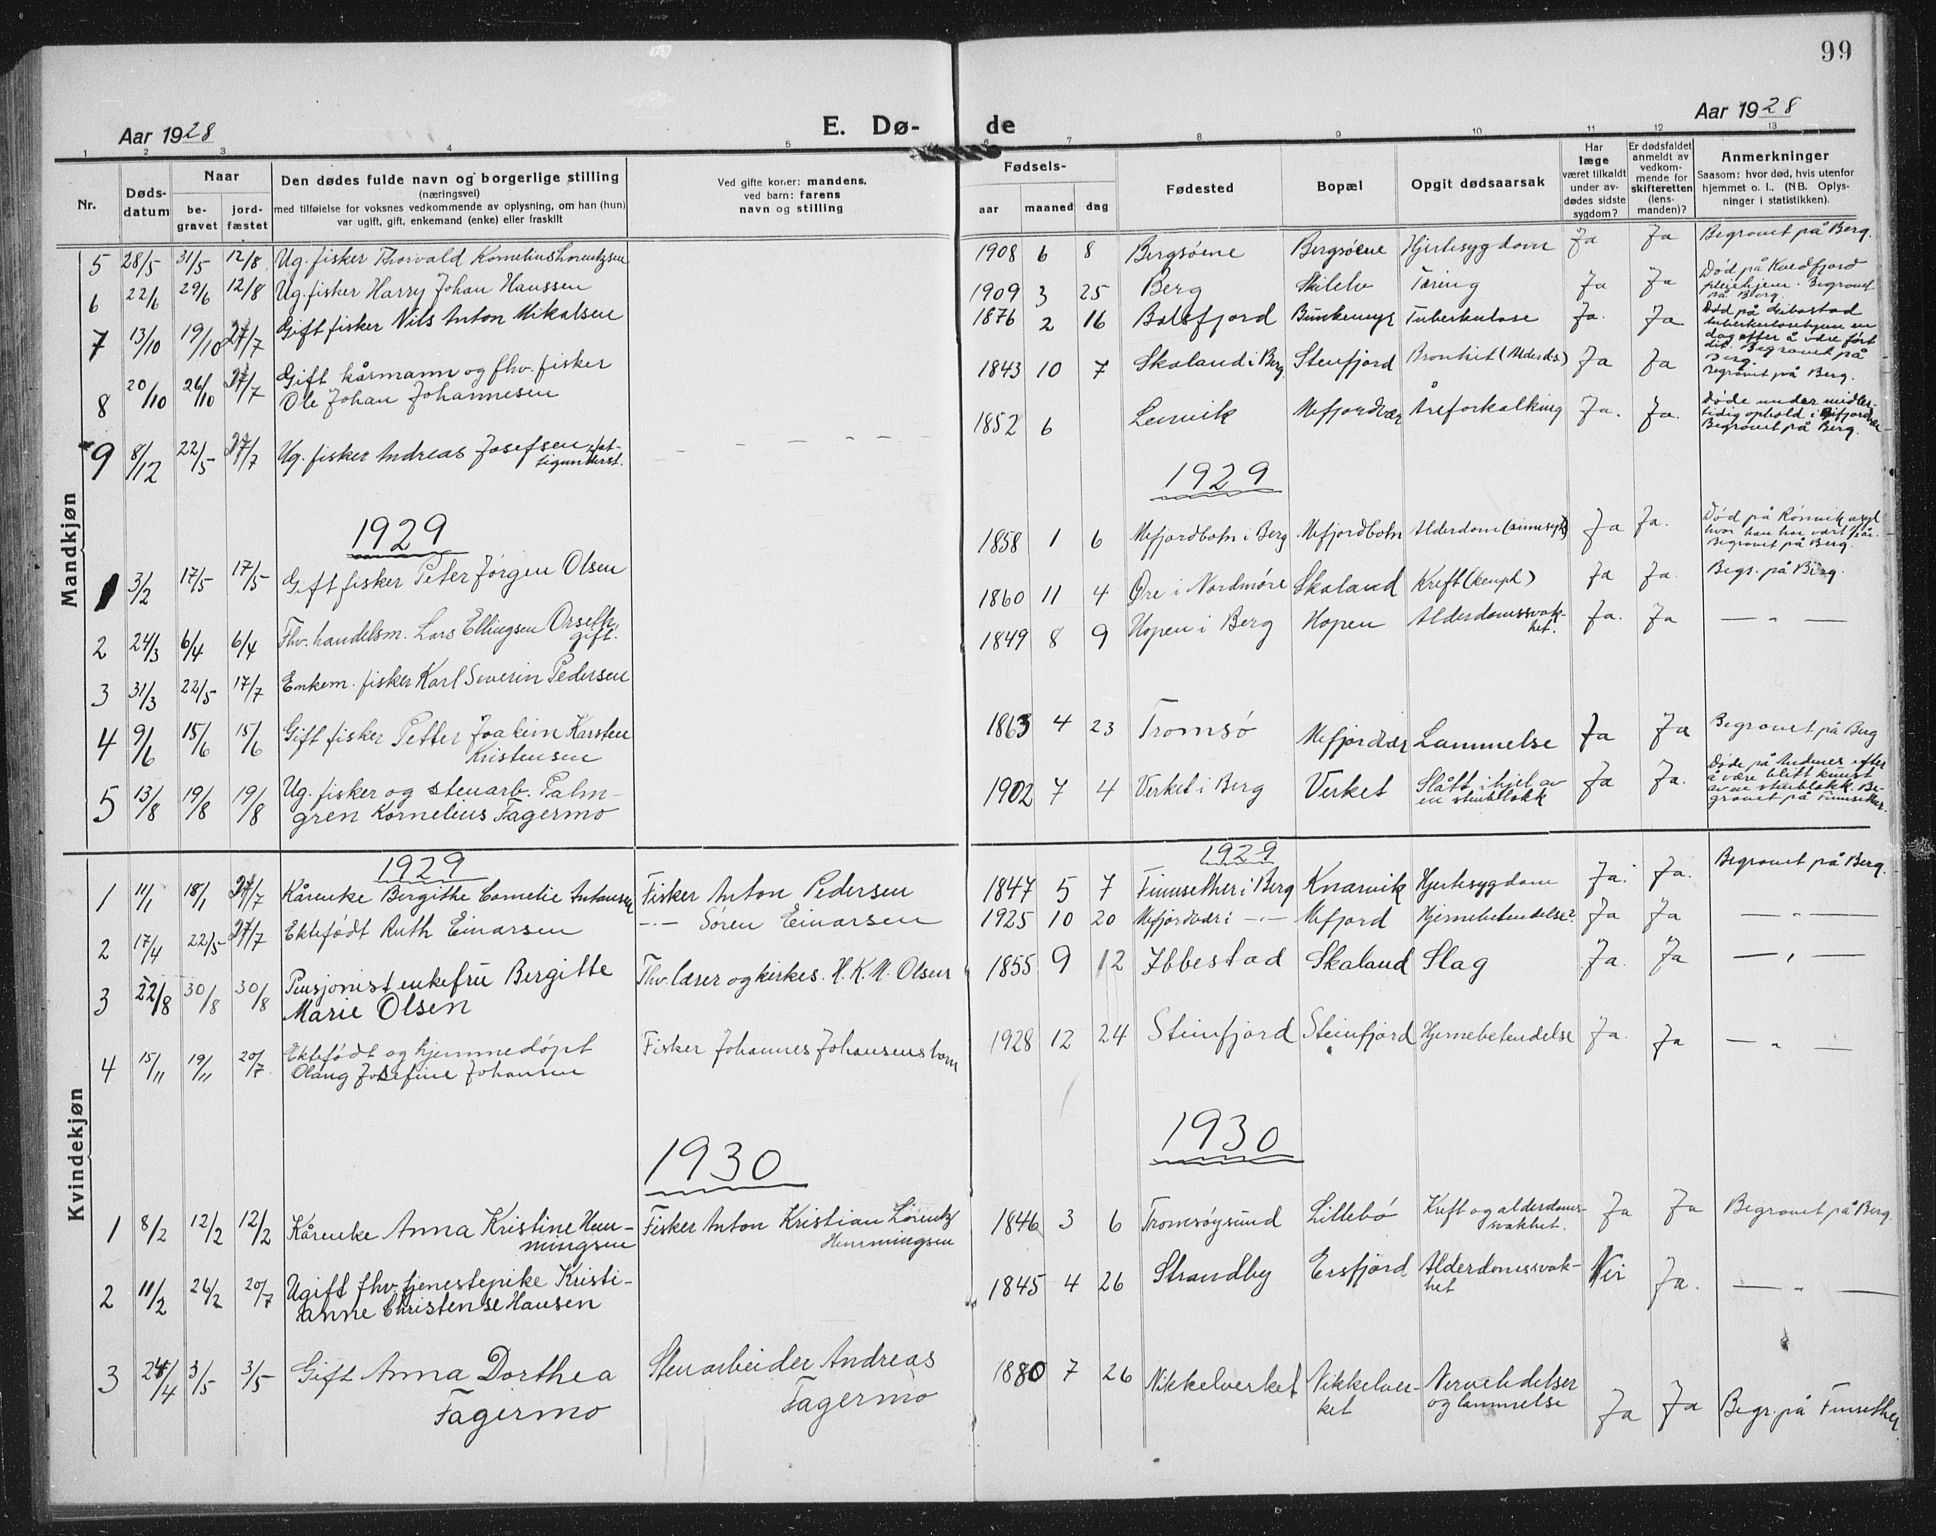 99
Aar 1928
E. Dø-
de
Aar 1928
1 2 3 4 5 6 7 8 9 10 11 12 13
Nr.
Døds-
datum
Naar
be-
gravet
jord-
fæstet
Den dødes fulde navn og borgerlige stilling
(næringsvei)
med tilføielse for voksnes vedkommende av oplysning, om han (hun)
var ugift, gift, enkemand (enke) eller fraskilt
Ved gifte koner: mandens,
ved barn: farens
navn og stilling
Fødsels-
aar
maaned
dag
Fødested
Bopæl
Opgit dødsaarsak
Har
læge
været tilkaldt
under av-
dødes sidste
sygdom?
Er dødsfaldet
anmeldt av
vedkom-
mende for
skifteretten
(lens-
manden)?
Anmerkninger
Saasom: hvor død, hvis utenfor
hjemmet o. l.. (NB. Oplys-
ninger i statistikken).
Mandkjøn
5 28/5 31/5 12/8 Ug. fisker Thorvald Kornelius Lorentzsen 1908 6 8 Bergsøene Bergsøene Hjertesygdom Ja Ja Begravet på Berg.
6 22/6 29/6 12/8 Ug. fisker Harry Johan Hanssen 1909 3 25 Berg Skilelv Tæring Ja Ja Død på Kvedfjord
pleiehjem. Begravet
på Berg
7 13/10 19/10 27/7 Gift fisker Nils Anton Mikalsen 1876 2 16 Balsfjord Bunkemyr Tuberkulose Ja. Ja Død på Sibostad
tuberkulosehjem en
dag efter å være ført
dit. Begravet på
Berg.
8 20/10 26/10 27/7 Gift kårmann og fhv. fisker
Ole Johan Johannesen 1843 10 7 Skaland i Berg Stenfjord Bronkit (Alderds.) Ja Ja Begravet på Berg.
9 8/12 22/5 27/7 Ug. fisker Andreas Josefsen, fat-
tigunderst. 1852 6 Lenvik Mefjordvær Åreforkalking Ja. Ja. Døde under midler-
tidig ophold i
Begravet på Berg.
1929
1929
1 3/2 17/5 17/5 Gift fisker Peter Jørgen Olsen 1858 1 6 Mefjordbotn i Berg Mefjordbotn Alderdom (sinnssyk) Ja Ja. Død på Rønvik asyl
hvor han har vært
Begravet på Berg.
2 24/3 6/4 6/4 Fhv. handelsm. Lars Ellingsen Orseth
gift. 1860 11 4 Øre i Nordmøre Skaland Kreft Ja Ja. Begr. på Berg.
3 31/3 22/5 17/7 Enkem. fisker Karl Severin Pedersen 1849 8 9 Hopen i Berg Hopen Alderdomssvak-
het. Ja. Ja — " —
4 9/6 15/6 15/6 Gift fisker Petter Joakim Karsten
Kristensen 1863 4 23 Tromsø Mefjordvær Lammelse Ja Ja Begravet på Berg
5 13/8 19/8 19/8 Ug. fisker og stenarb. Palm-
gren Kornelius Fagermo 1902 7 4 Verket i Berg Verket Slått ihjel av
en stenblokk Ja Ja. Døde på Andenes efter
å være blitt knust
av en stenblokk. Be-
gravet på Finnsether.
Kvindekjøn
1929
1929
1 11/1 18/1 27/7 Kårenke Bergithe Cornelie Antonsen Fisker Anton Pedersen 1847 5 7 Finnsether i Berg Knarvik Hjertesygdom Ja. Ja. Begravet på Berg.
2 17/4 22/5 27/7 Ektefødt Ruth Einarsen —"— Søren Einarsen 1925 10 20 Mefjordvær i —"— Mefjord Hjernebetendelse? Ja Ja — " —
3 22/8 30/8 30/8 Pensjonist enkefru Bergitte
Marie Olsen Fhv. lærer og kirkes. H. K. M. Olsen 1855 9 12 Ibbestad Skaland Slag Ja. Ja — " —
4 15/11 19/11 20/7 Ektefødt og hjemmedøpt
Olaug Josefine Johansen Fisker Johannes Johansens barn 1928 12 24 Steinfjord Steinfjord Hjernebetendelse Ja. Ja — " —
1930
1930
1 8/2 12/2 12/2 Kårenke Anna Kristine Hem-
mingsen Fisker Anton Kristian Lorentz
Hemmingsen 1846 3 6 Tromsøysund Lillebø Kreft og alderdoms-
svakhet. Ja Ja Begravet på Berg.
2 11/2 26/2 20/7 Ugift fhv. tjenestepike Kristi-
anne Christense Hansen 1845 4 26 Strandby Ersfjord Alderdomssvak-
het Nei Ja. — " —
3 24/4 3/5 3/5 Gift Anna Dorthea
Fagermo Stenarbeider Andreas
Fagermo 1880 7 26 Nikkelverket Nikkelver-
ket Nervelidelser
og lammelse Ja Ja Begr. på Finnsether